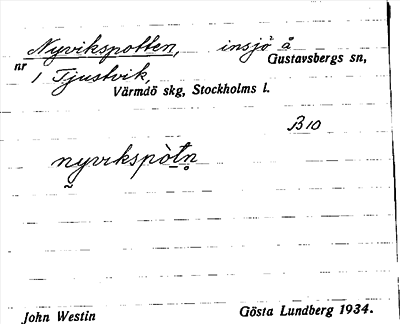 Nyvikspotten, insjö å
nr 1 Tjustvik, Gustavsbergs sn,
Värmdö skg, Stockholms l.
B10
nyvikspòtn
John Westin Gösta Lundberg 1934.